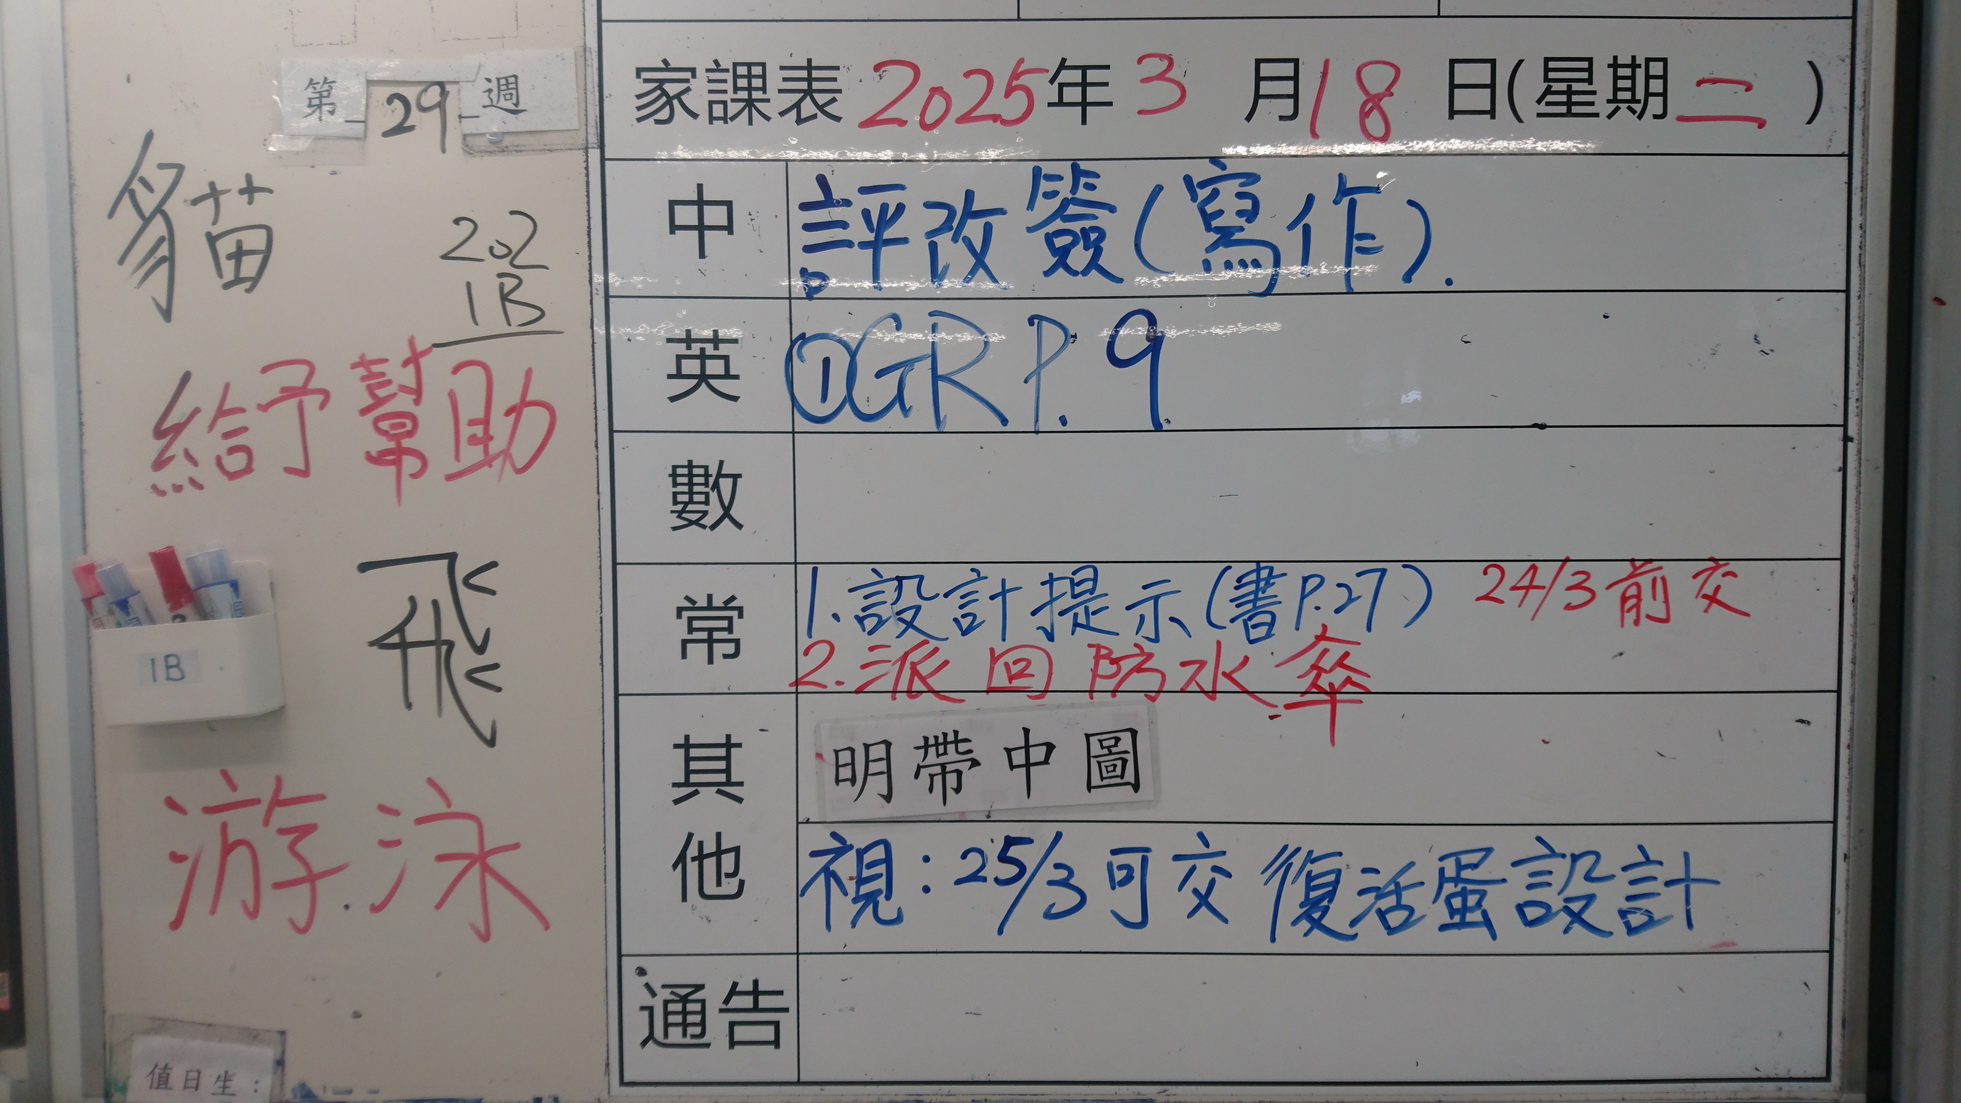 第 29 週
貓
202
1B
給予幫助
飛
1B
游泳
值日生：
家課表 2025年 3 月 18 日(星期 二 )
中 評改簽(寫作).
英 ①GR P. 9
數
常 1.設計提示(書P.27) 24/3前交
2.派回防水傘
其他 明帶中圖
視：25/3可交復活蛋設計
通告